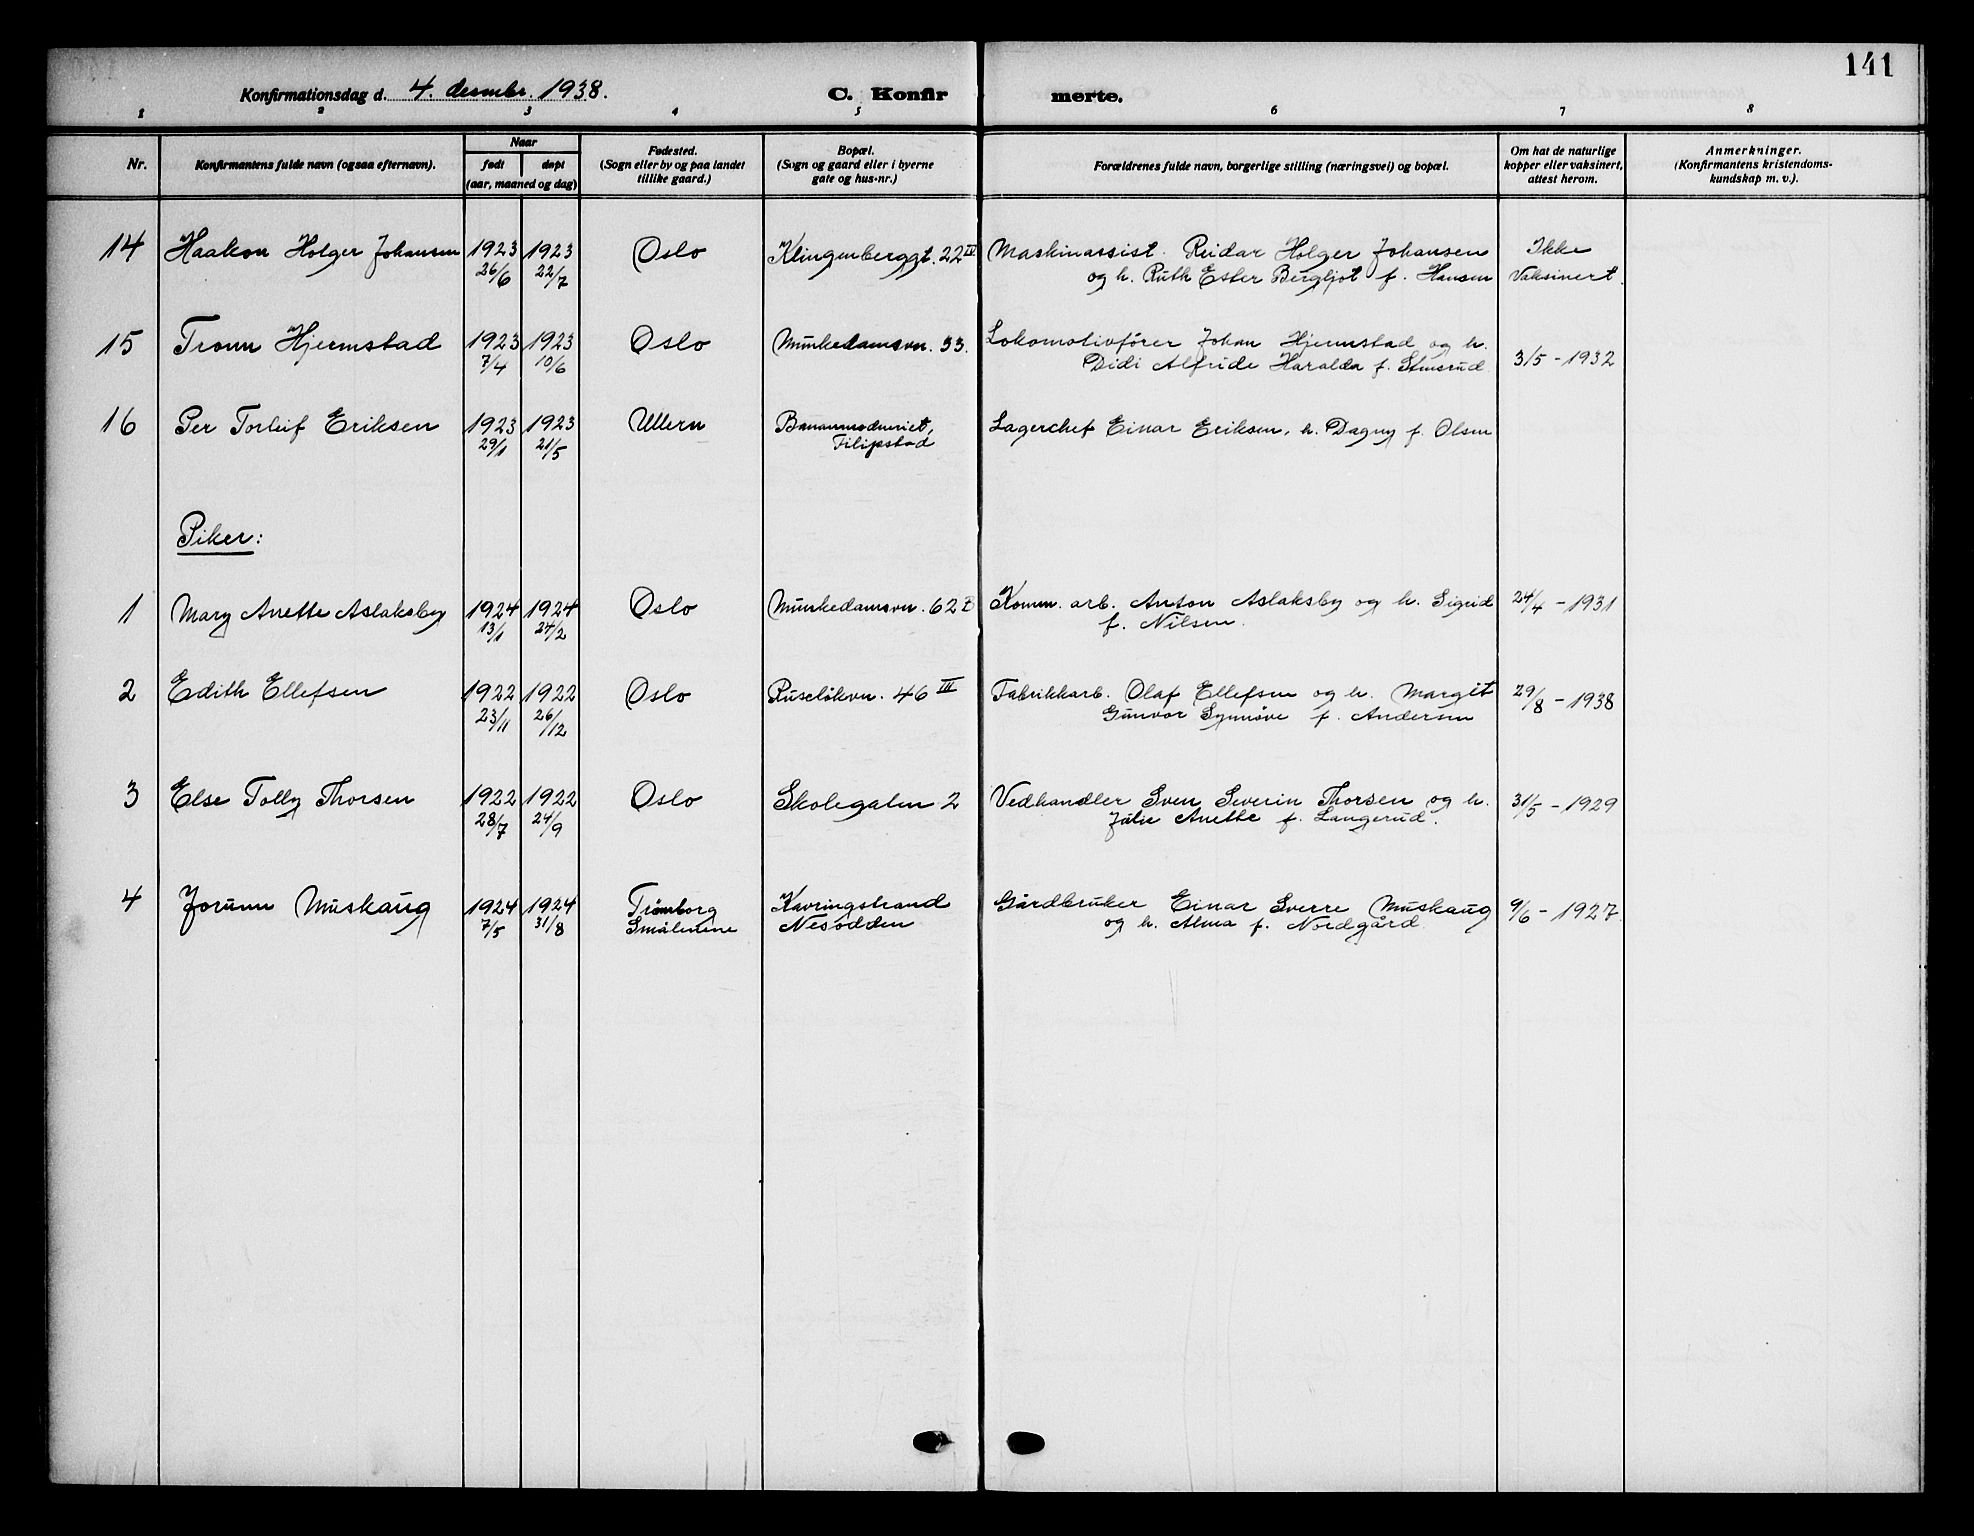 141
Konfirmationsdag d. 4. desembr. 1938. C. Konfir merte.
1 2 3 4 5 6 7 8
Nr.
Konfirmantens fulde navn (ogsaa efternavn).
Naar
født døpt
(aar, maaned og dag)
Fødested.
(Sogn eller by og paa landet
tillike gaard.)
Bopæl.
(Sogn og gaard eller i byerne
gate og hus-nr.)
Forældrenes fulde navn, borgerlige stilling (næringsvei) og bopæl.
Om hat de naturlige
kopper eller vaksinert,
attest herom.
Anmerkninger.
(Konfirmantens kristendoms-
kundskap m. v.).
14 Haakon Holger Johansen 1923 1923 Oslo Klingenberggt. 22 IV Maskinassist. Reidar Holger Johansen Ikke
26/6 22/7 og h. Ruth Ester Bergljot f. Hansen Vaksinert.
15 Tronn Hjermstad 1923 1923 Oslo Munkedamsvn. 53. Lokomotivfører Johan Hjermstad og h.
7/4 10/6 Didi Alfride Haralda f. Stensrud 3/5 - 1932
16 Per Torleif Eriksen 1923 1923 Ullern Bananmodneriet, Lagerchef Einar Eriksen, h. Dagny f. Olsen
29/1 21/5 Filipstad
Piker:
1 Mary Anette Aslaksby 1924 1924 Oslo Munkedamsvn. 62 B Komm. arb. Anton Aslaksby og h. Sigrid 24/4 - 1931
13/1 24/2 f. Nilsen.
2 Edith Ellefsen 1922 1922 Oslo Ruseløkvn. 46 III Fabrikkarb. Olaf Ellefsen og h. Margit 29/8 - 1938
23/11 26/12 Gunvor Synnøve f. Andersen
3 Else Tolly Thorsen 1922 1922 Oslo Skolegaten 2 Vedhandler Sven Severin Thorsen og h. 31/5 - 1929
28/7 24/9 Julie Anette f. Langerud.
4 Jorunn Muskaug 1924 1924 Trømborg Kavringstrand Gårdbruker Einar Sverre Muskaug 9/6 - 1927.
7/5 31/8 Smålenene Nesodden og h. Alma f. Nordgård